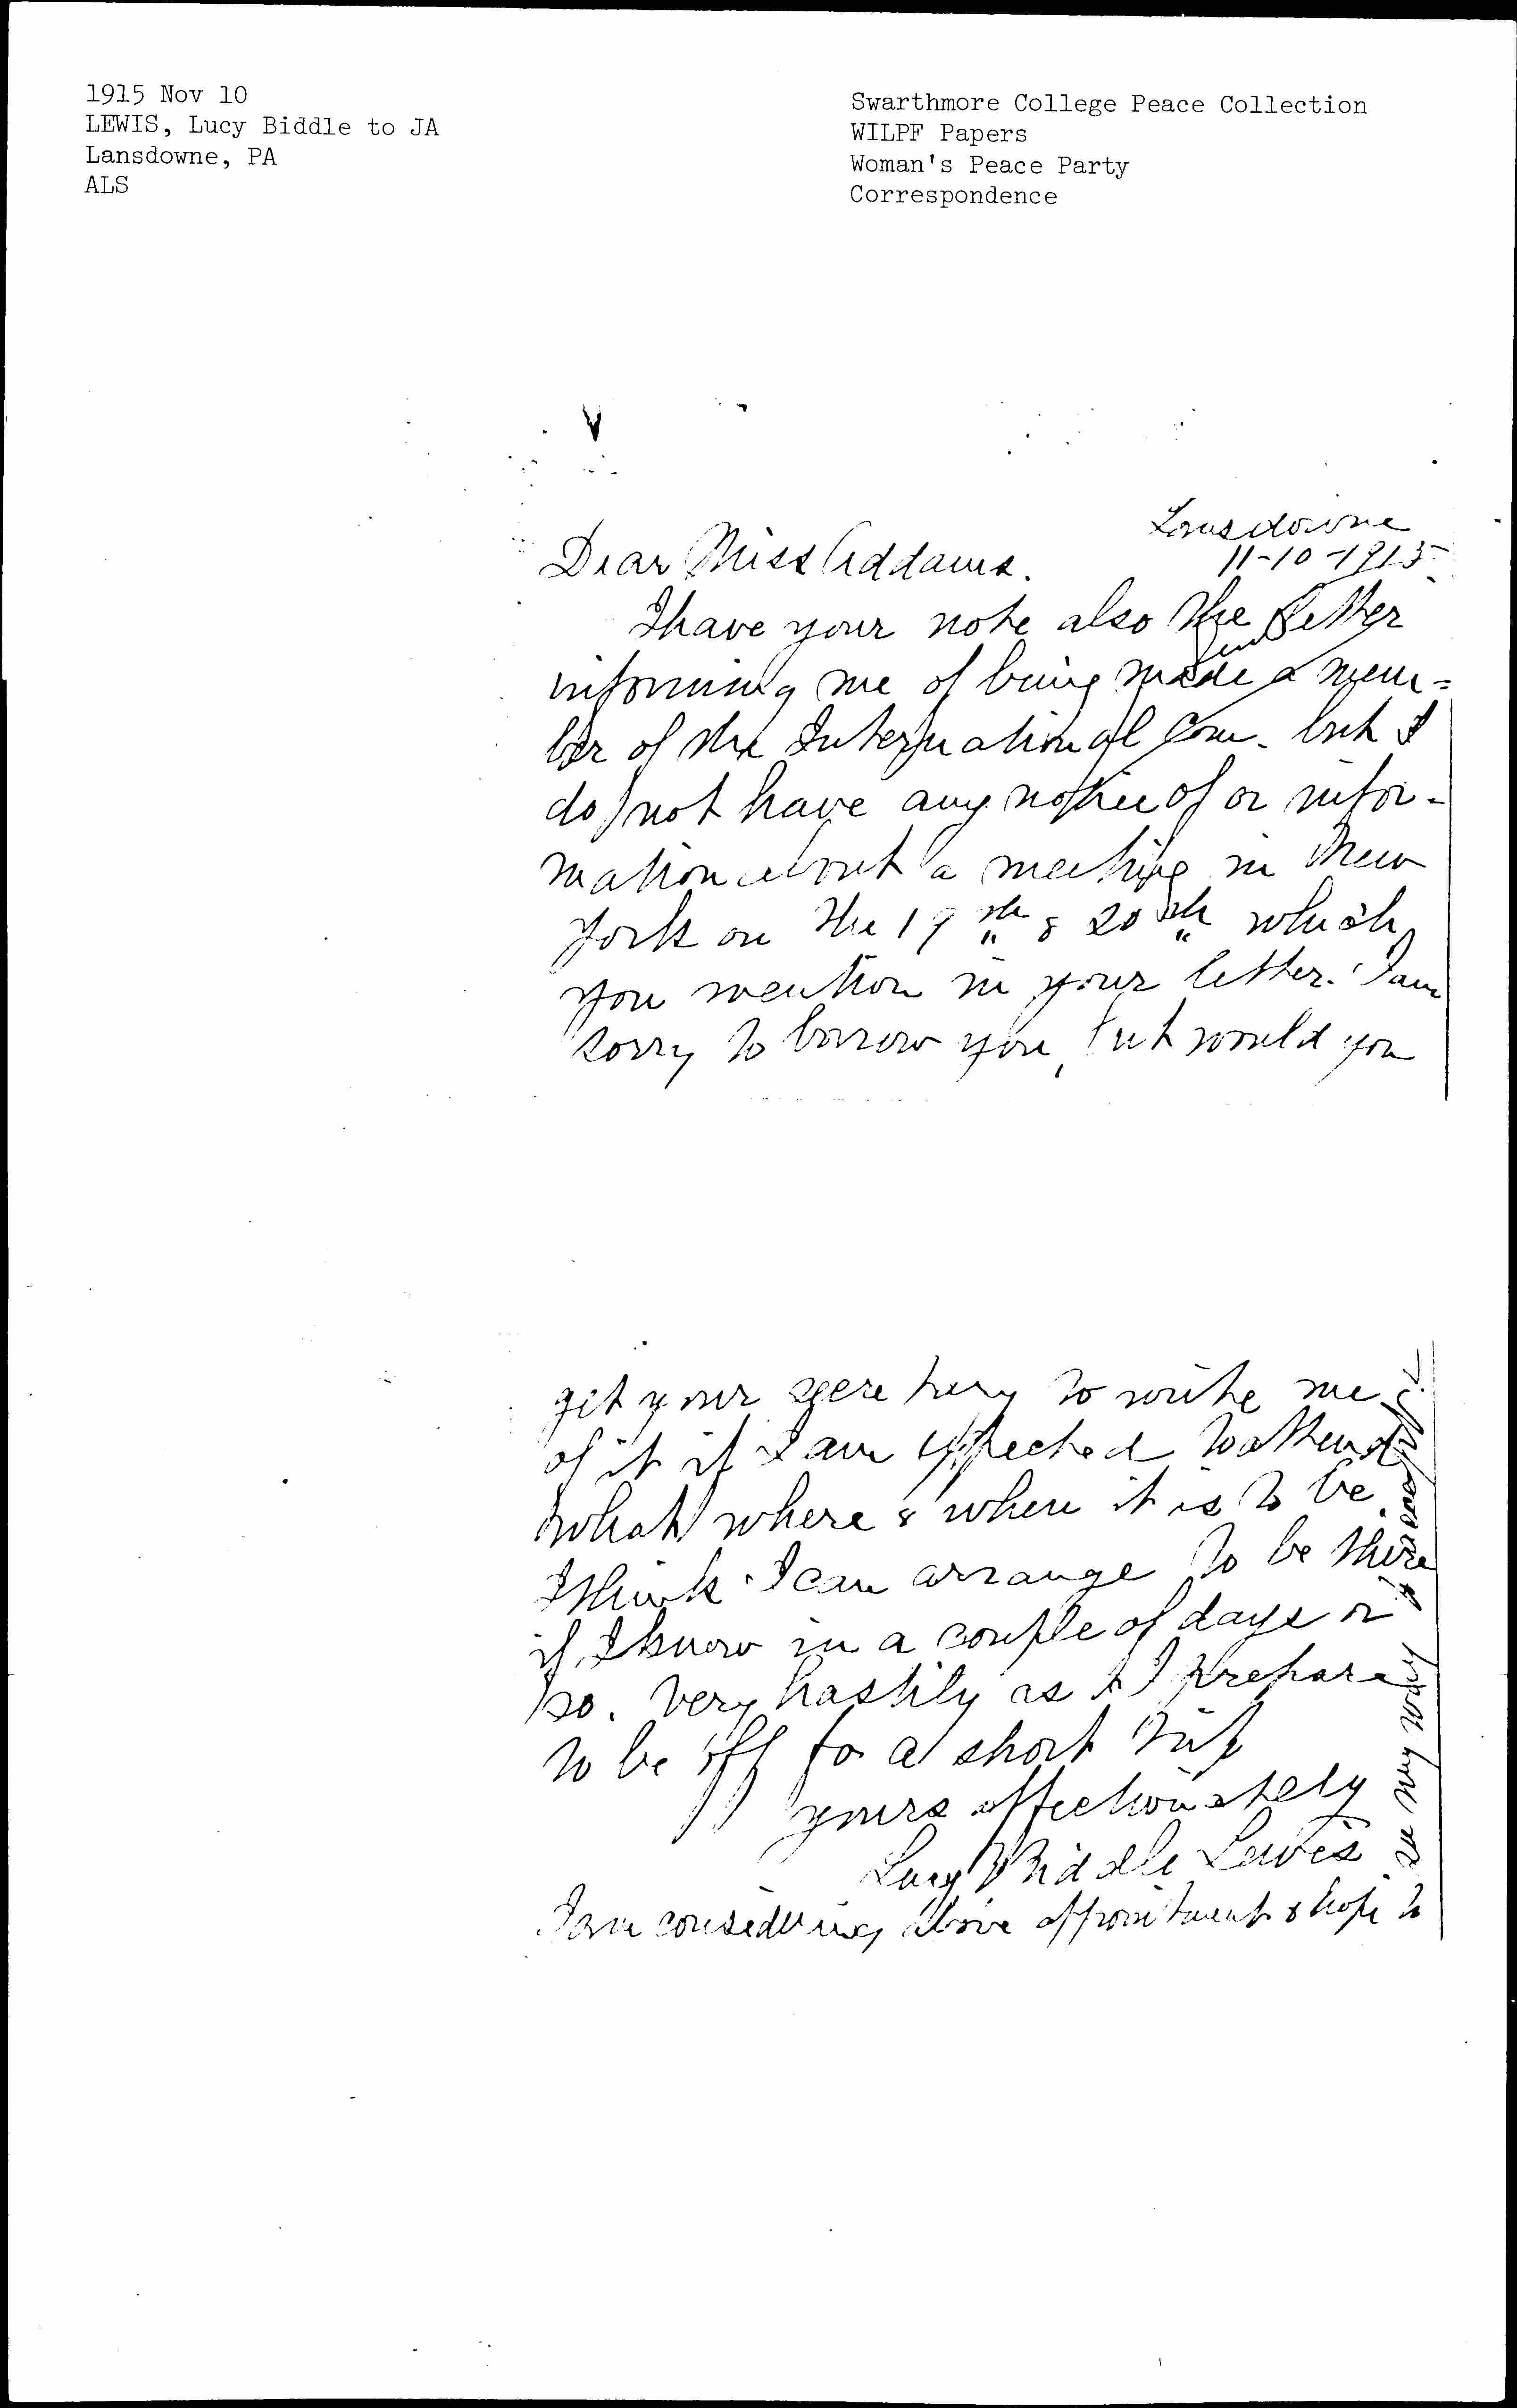 1915 Nov 10
LEWIS, Lucy Biddle to JA
Lansdowne, PA
ALS
Swarthmore College Peace Collection
WILPF Papers
Woman's Peace Party
Correspondence
Lansdowne
11-10-1915
Dear Miss Addams.
I have your note also the letter
informing me of being made a mem=
ber of the International Com. but I
do not have any notice of or infor-
mation about a meeting in New
York on the 19th & 20th which
you mention in your letter. I am
sorry to you, but would you
get your secretary to write me
of it if I am expected to attend
what where & when it is to be.
I think I can arrange to be there
if I know in a couple of days or
so. Very hastily as I prepare
to be off for a short trip
yours affectionately
Lucy Biddle Lewis
I am considering above appointment & hope to
see my way to